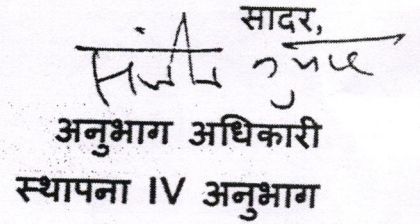 सादर,
अनुभाग अधिकारी
स्थापना IV अनुभाग